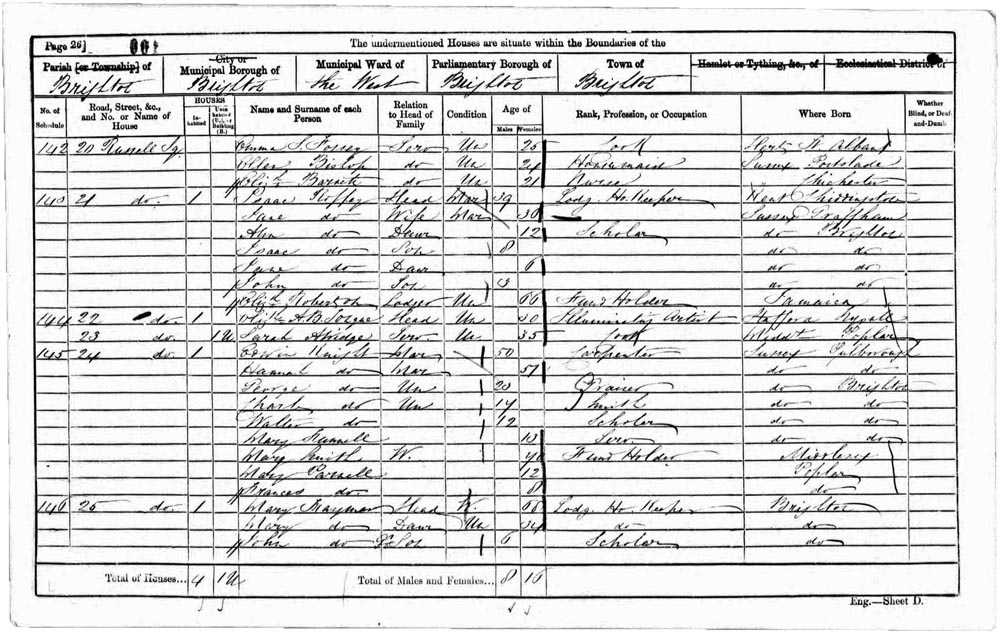 Page 26]
The undermentioned Houses are situate within the Boundaries of the
Parish [or Township] of Brighton
City or Municipal Borough of Brighton
Municipal Ward of the West
Parliamentary Borough of Brighton
Town of Brighton
Hamlet or Tything, &c., of
Ecclesiastical District of
No. of Schedule
Road, Street, &c., and No. or Name of House
HOUSES
Inhabited
Uninhabited (U.), or Building (B.)
Name and Surname of each Person
Relation to Head of Family
Condition
Age of
Males
Females
Rank, Profession, or Occupation
Where Born
Whether Blind, or Deaf-and-Dumb
142 20 Russell Sq. Emma S. Serv Un 25 Cook Herts St Albans
Ellen Bishop do Un 24 Housemaid Sussex Portslade
do Un 21 Nurse Chichester
143 21 do. 1 Isaac Head Mar 39 Lodg. Ho. Keeper Kent
Jane do Wife Mar 38 Sussex Graffham
do Daur 12 Scholar do Brighton
Isaac do Son 8 do do
Jane do Daur 6 do do
John do Son 3 do do
Robertson Lodger Un 66 Fund Holder Jamaica
144 22 do. 1 A. B. Head Un 30 Illuminating Artist
23 do. 1 U Sarah Serv Un 35 Cook Middx Poplar
145 24 do. 1 Edwin Knight Mar 50 Carpenter Sussex Pulborough
Hannah do Mar 51 do do
George do Un 20 do Brighton
do Un 17 Smith do do
Walter do 12 Scholar do do
Mary Serv. do do
Mary Smith W. Fund Holder Middlesex
Mary 12 Poplar
Frances do 8 do
146 25 do. 1 Mary Head W. 66 Lodg. Ho. Keeper Brighton
Mary do Daur Un 34 do do
John do Son 6 Scholar do
Total of Houses... 4 1U
Total of Males and Females... 8 16
Eng.—Sheet D.